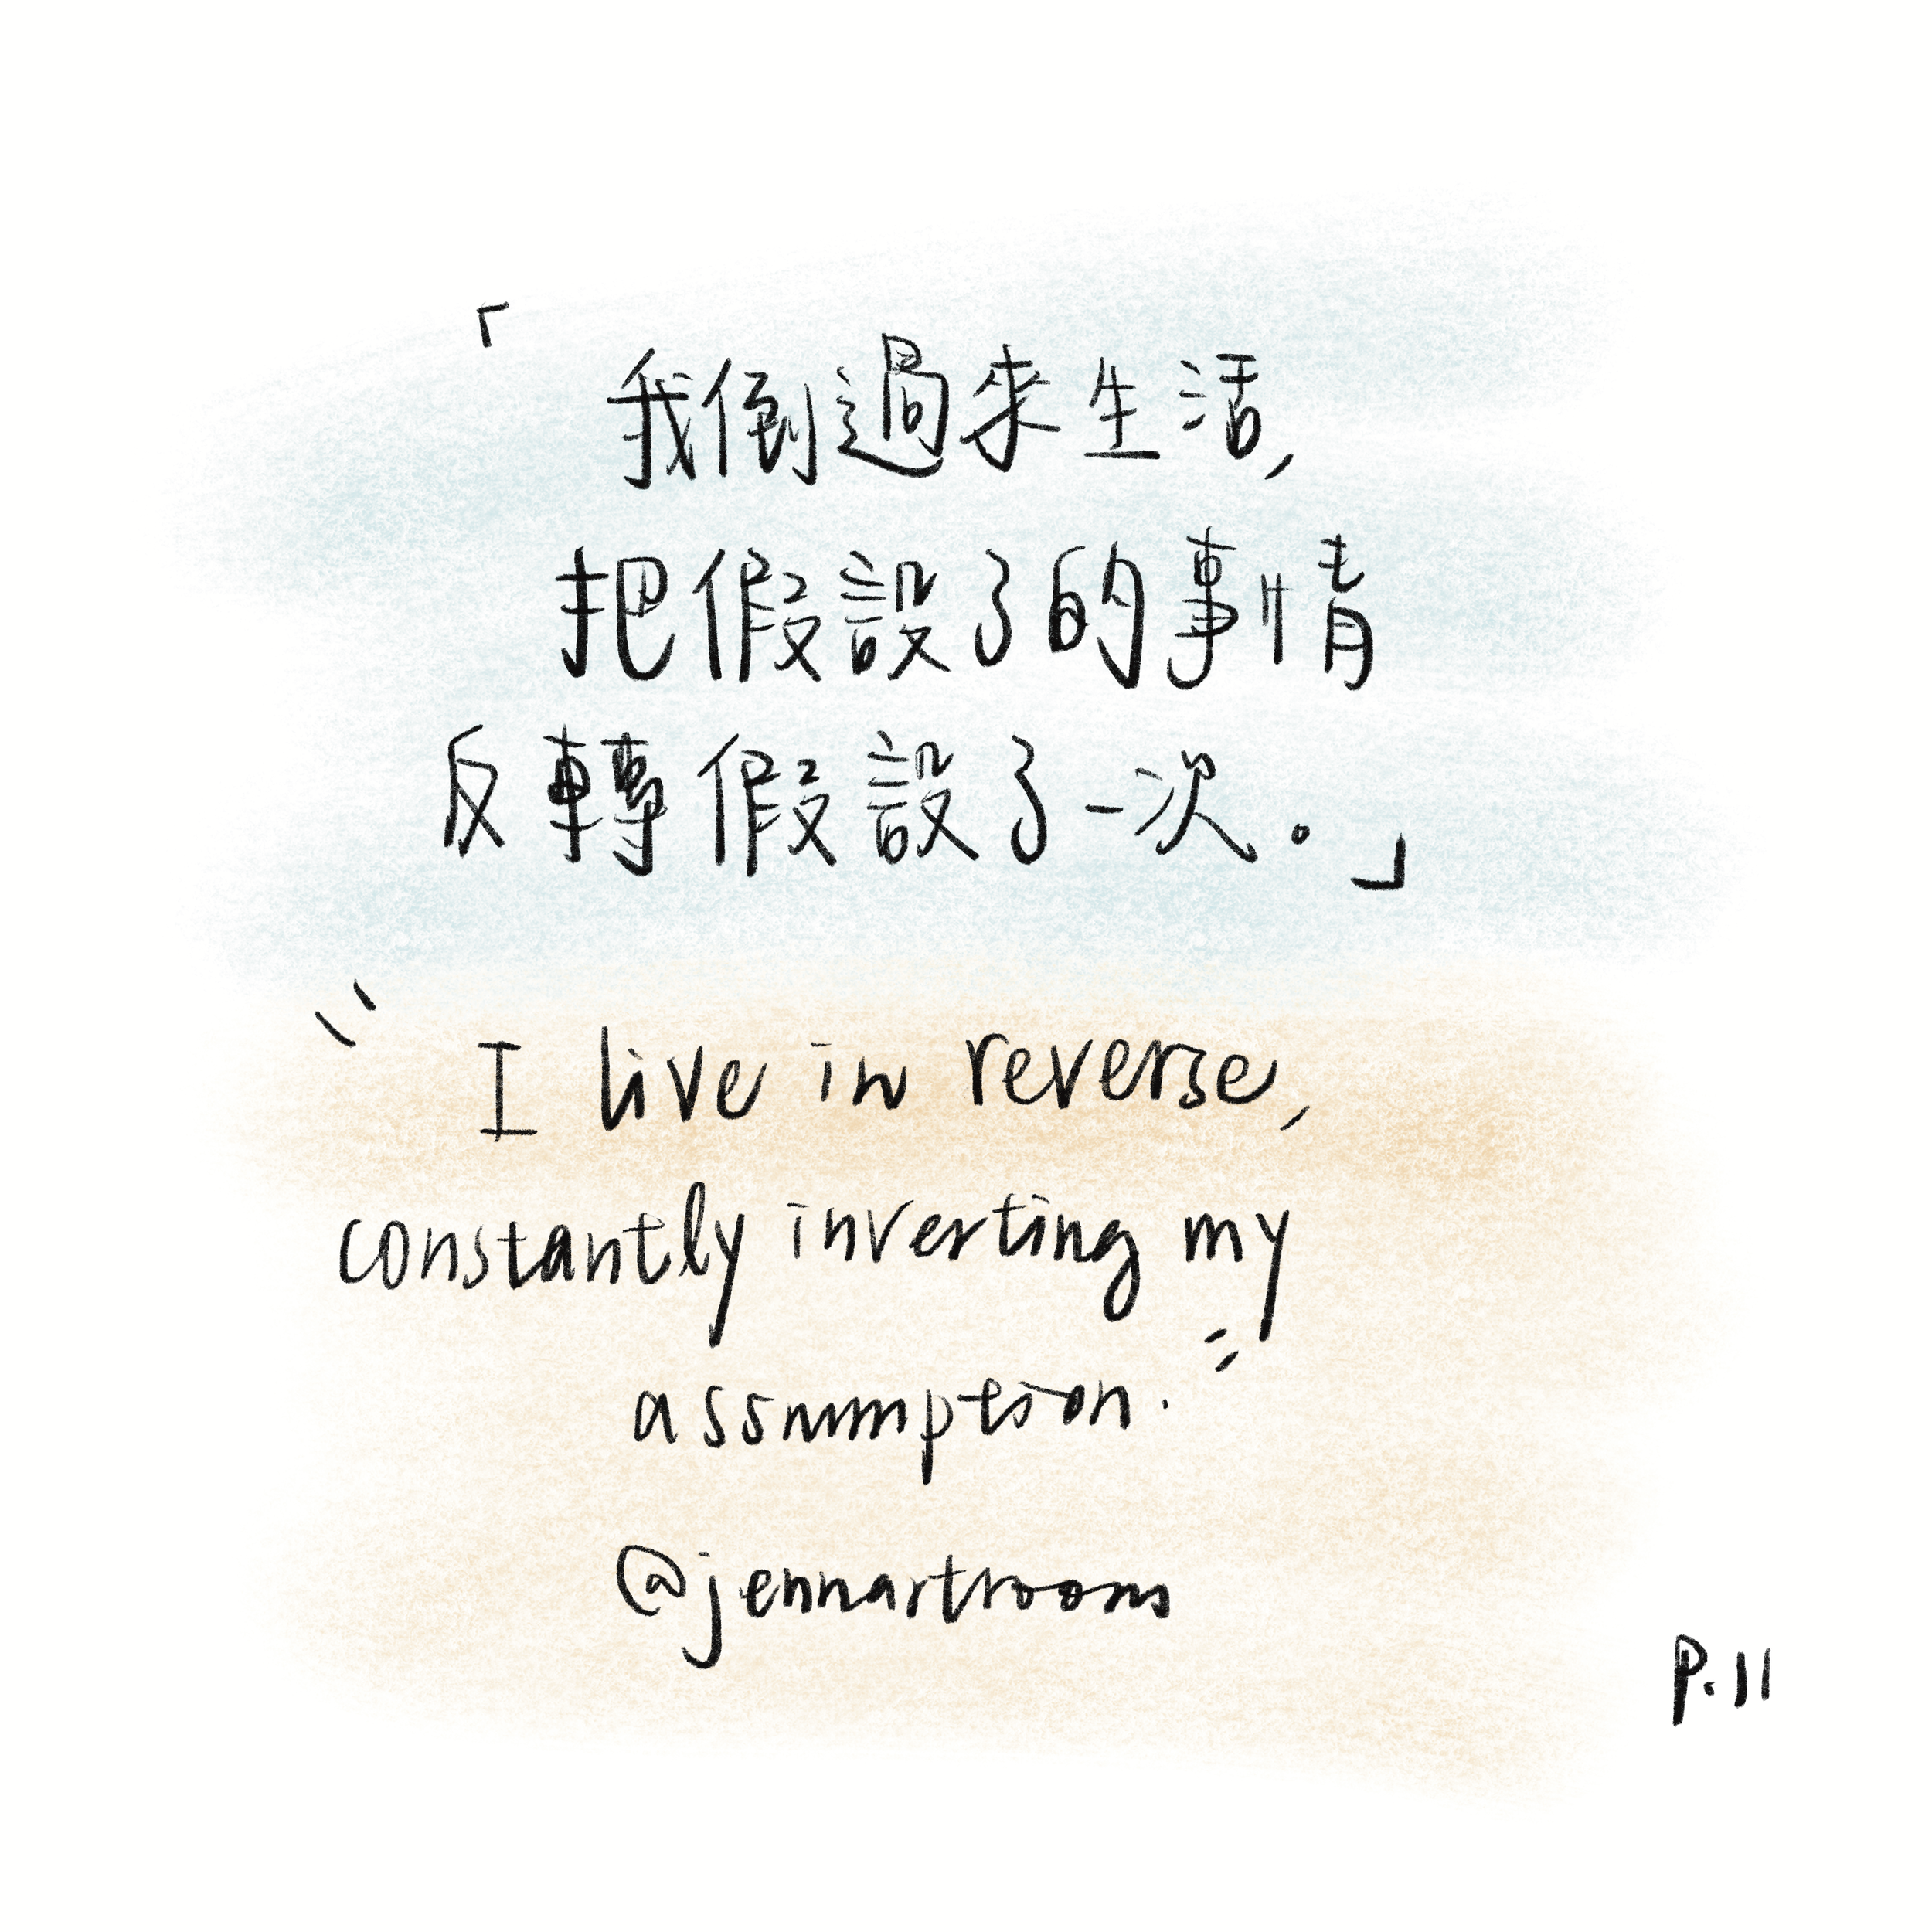 「我倒過來生活,
把假設了的事情
反轉假設了一次。」
"I live in reverse,
constantly inverting my
assumption."
@jennartroom
P.11